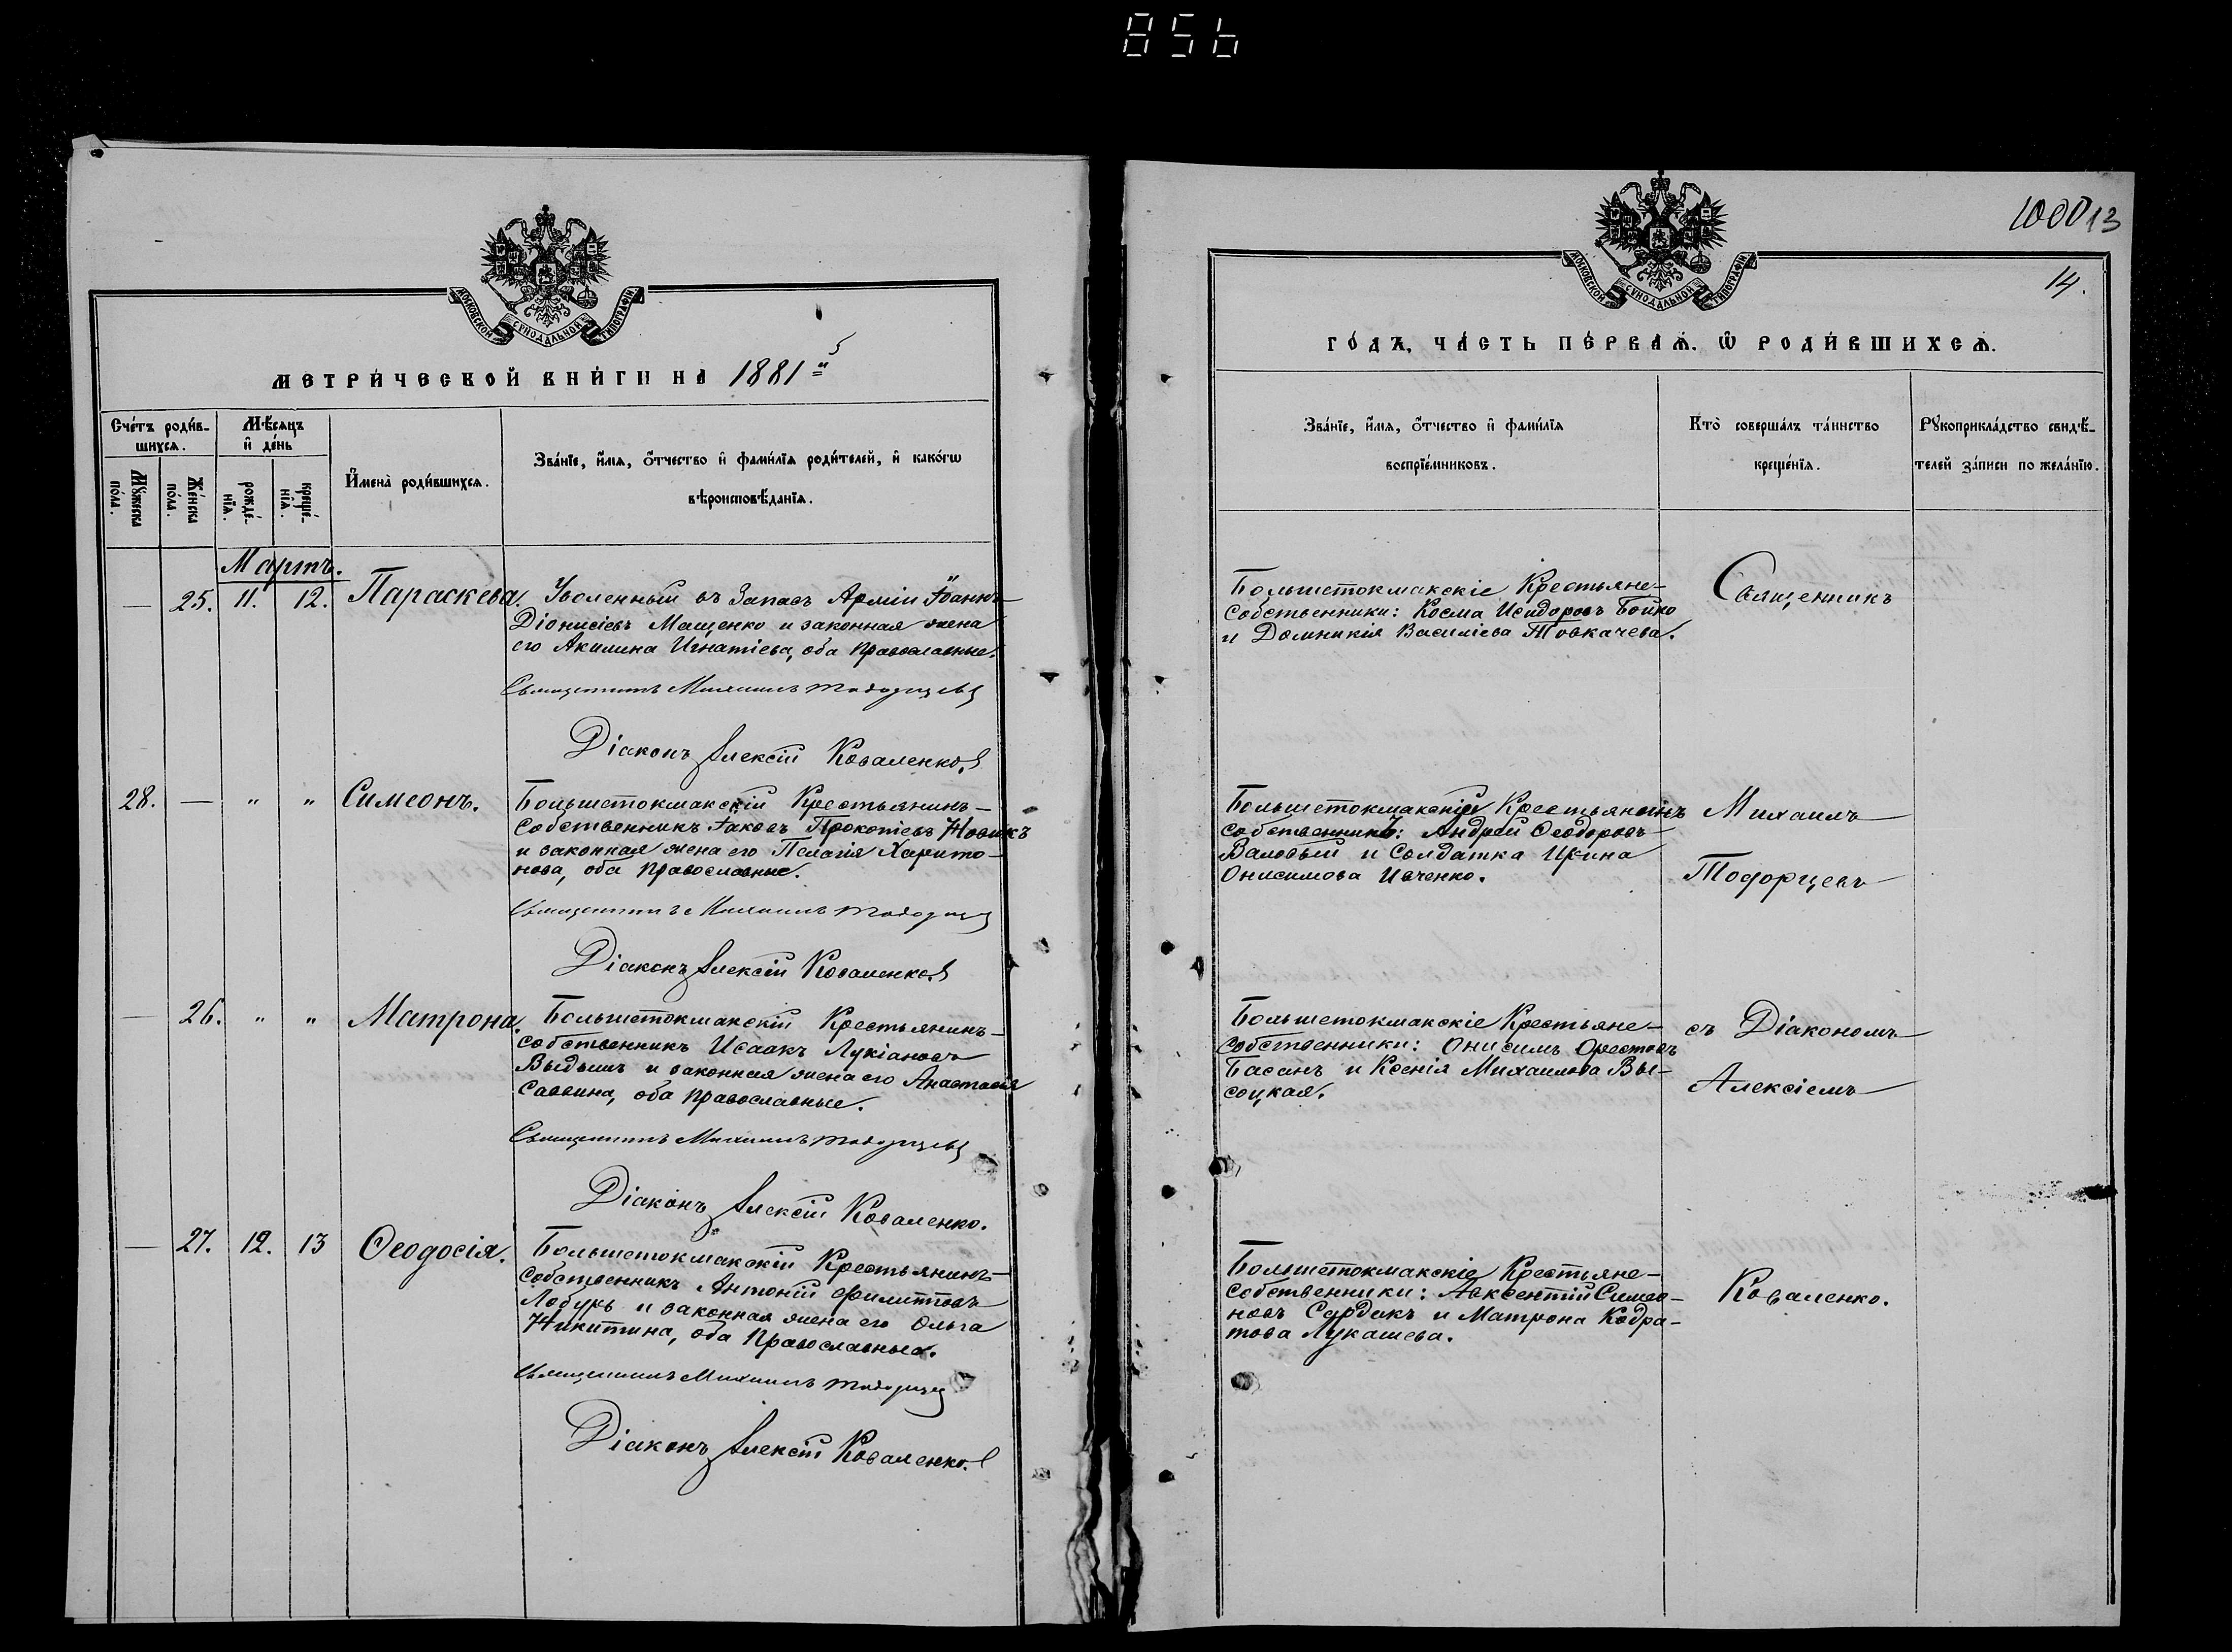 856
МОСКОВСКОЙ СѴНОДАЛЬНОЙ ТИПОГРАФІИ
МЕТРИ́ЧЕСКОЙ КНИ́ГИ НА 1881й
Сче́тъ роди́в-
шихсѧ.
Мѣ́сѧцъ
и҆ де́нь
Мꙋ́жеска
по́ла.
Же́нска
по́ла.
рожде́-
нїѧ.
креще́-
нїѧ.
И҆мена̀ роди́вшихсѧ.
Зва́нїе, и҆́мѧ, ѻ҆́тчество и҆ фами́лїѧ роди́телей, и҆ како́гѡ
вѣроисповѣ́данїѧ.
Мартъ.
— 25. 11. 12. Параскева.
Уволенный въ Запасъ Арміи Іоаннъ
Діонисіевъ Мащенко и законная жена
его Акилина Игнатіева, оба Православные.
Священникъ Михаилъ Тодорцевъ
Діаконъ Алексій Коваленко.
28. — " " Симеонъ.
Большетокмакскій Крестьянинъ-
Собственникъ Іаковъ Прокопіевъ Новикъ
и законная жена его Пелагія Харито-
нова, оба Православные.
Священникъ Михаилъ Тодорцевъ
Діаконъ Алексій Коваленко.
— 26. " " Матрона.
Большетокмакскій Крестьянинъ-
собственникъ Исаакъ Лукіановъ
Выдышъ и законная жена его Анастасія
Саввина, оба православные.
Священникъ Михаилъ Тодорцевъ
Діаконъ Алексій Коваленко.
— 27. 12. 13 Ѳеодосія.
Большетокмакскій Крестьянинъ-
Собственникъ Антоній Филипповъ
Лобуръ и законная жена его Ольга
Никитина, оба Православные.
Священникъ Михаилъ Тодорцевъ
Діаконъ Алексій Коваленко.
100013
14.
МОСКОВСКОЙ СѴНОДАЛЬНОЙ ТИПОГРАФІИ
ГО́ДЪ, ЧА́СТЬ ПЕ́РВАѦ. Ѡ҆ РОДИ́ВШИХСѦ.
Зва́нїе, и҆́мѧ, ѻ҆́тчество и҆ фами́лїѧ
воспрїе́мниковъ.
Кто̀ соверша́лъ та́инство
креще́нїѧ.
Рꙋкоприкла́дство свидѣ́-
телей за́писи по жела́нїю.
Большетокмакскіе Крестьяне-
Собственники: Косма Исидоровъ Бойко
и Домникія Василіева Товкачева.
Священникъ
Большетокмакскій Крестьянинъ
собственникъ: Андрей Ѳеодоровъ
Валовый и Солдатка Ирина
Онисимова Ивченко.
Михаилъ
Тодорцевъ
Большетокмакскіе Крестьяне-
собственники: Онисимъ Орестовъ
Басанъ и Ксенія Михаилова Вы-
соцкая.
съ Діакономъ
Алексіемъ
Большетокмакскіе Крестьяне-
Собственники: Авксентій Симео-
новъ Сердакъ и Матрона Кодра-
това Лукашева.
Коваленко.